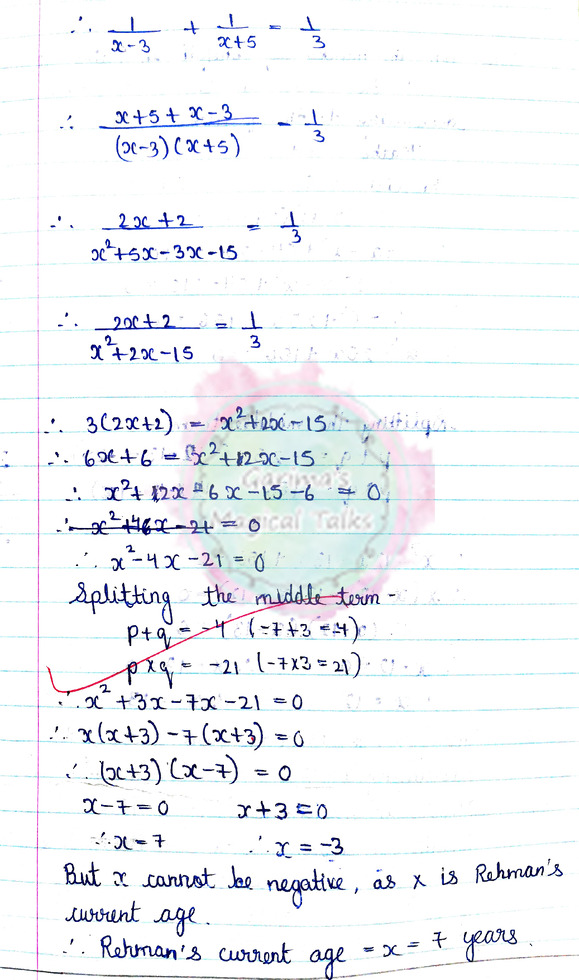 ∴ 1/(x-3) + 1/(x+5) = 1/3
∴ (x+5+x-3)/((x-3)(x+5)) = 1/3
∴ (2x+2)/(x²+5x-3x-15) = 1/3
∴ (2x+2)/(x²+2x-15) = 1/3
∴ 3(2x+2) = x²+2x-15
∴ 6x+6 = x²+2x-15
∴ x²+2x-6x-15-6 = 0
∴ x²+46x-21=0
∴ x²-4x-21=0
Garima's
Magical Talks
Splitting the middle term-
p+q = -4 (-7+3=-4)
p×q = -21 (-7×3=21)
∴ x²+3x-7x-21=0
∴ x(x+3)-7(x+3)=0
∴ (x+3)(x-7)=0
x-7=0 x+3=0
∴ x=7 ∴ x=-3
But x cannot be negative, as x is Rehman's
current age.
∴ Rehman's current age = x = 7 years.